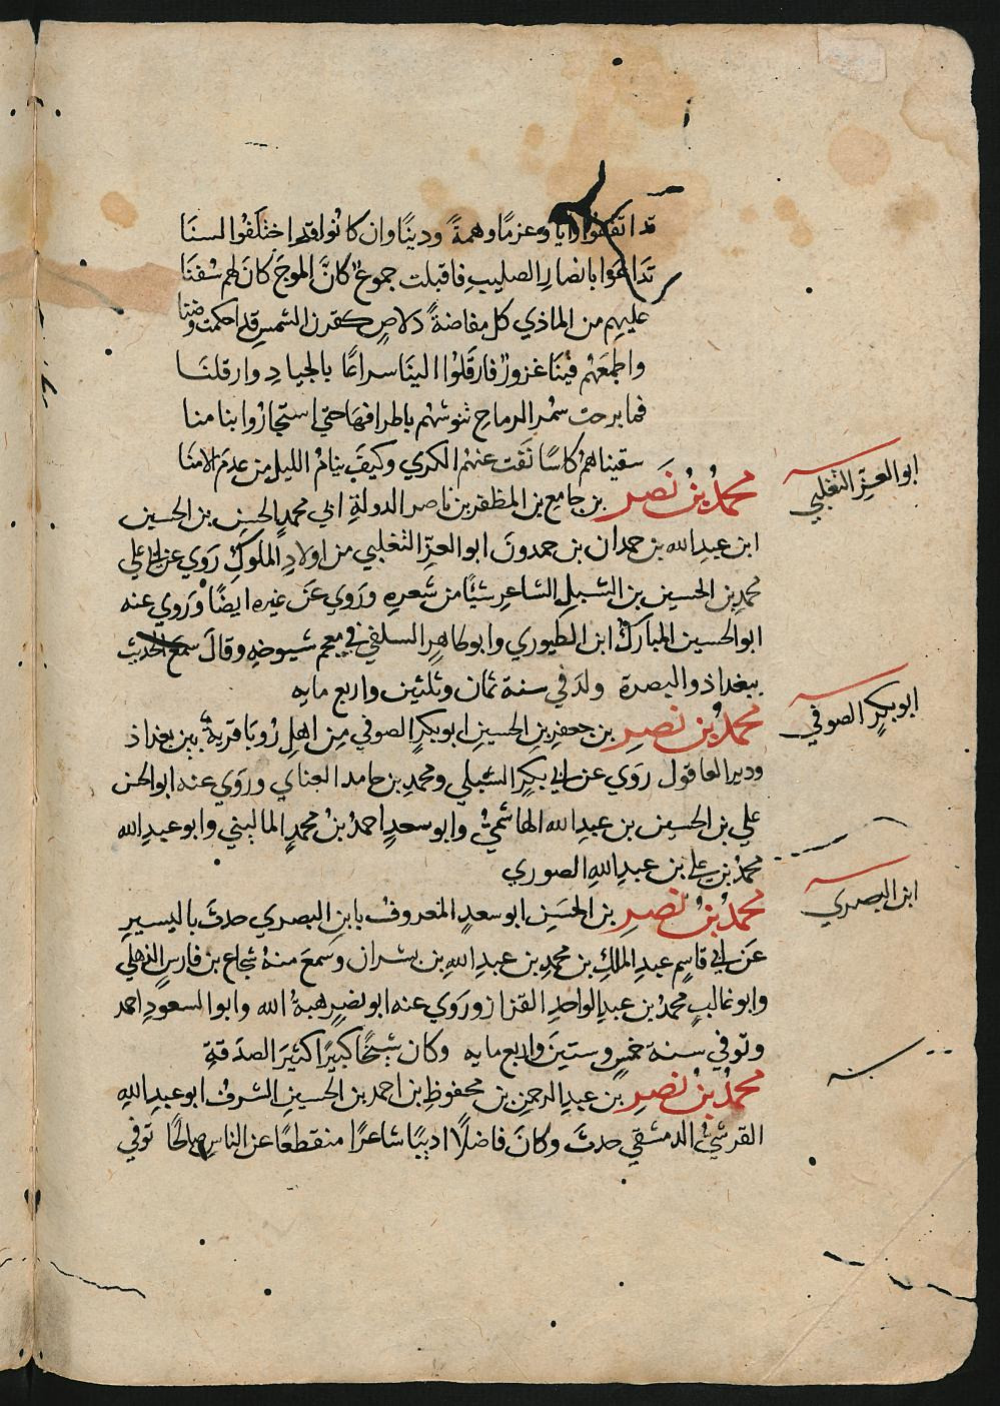 قد اتفقوا رايًا وعزمًا وهمةً ودينًا وان كانوا قد اختلفوا لسنَا
تداعَوا بانصارِ الصليبِ فاقبلت جموعٌ كانَّ الموجَ كانَ لهم سُفنَا
عليهم من الماذي كل مفاضةً دلاصٍ كقرن الشمسِ قد احكمت وضنا
واطمعَهُم فينَا غرورٌ فارقَلُوا الينَا سراعًا بالجيادِ وارقلنَا
فما برحت سمْر الرماحِ تنوشهُم باطرافهَا حتي استجارُوا بنا منا
سقيناهمُ كاسًا نَفَت عنهُم الكري وكيفَ ينامُ الليل من عدمَ الامنَا
ابو العزّ التغلبي
محمدُ بنُ نَصرِ بن جامع بن المظفر بن ناصر الدولةِ ابي محمدٍ الحسن بن الحسين
ابن عبد الله بن حمدان بن حمدونَ ابو العزّ التغلبي من اولادِ الملوكِ رَوي عن ابي علي
محمد بن الحسين بن الشبلِ الشاعرِ شيًا من شعرهِ ورَوي عَن غيره ايضًا ورَوي عنه
ابو الحسين المبارك ابن الطيوري وابو طاهرِ السلفي في معجم شيوخهِ وقالَ سمع الحديث
ببغداذ والبصرة ولدَ في سنة ثمان وثلثين واربع مايه
ابو بكرٍ الصوفي
محمدُ بنُ نصرِ بن جعفرِ بنِ الحسينِ ابو بكرٍ الصوفي مِن اهلِ رُوبَا قريةٌ بين بغداذ
ودير العاقول رَوي عن ابي بكرٍ الشبلي ومحمدِ بن حامد العناي ورَوي عنه ابو الحسن
علي بن الحسين بن عبد الله الهاشميُّ وابو سعدٍ احمدُ بنُ محمدٍ الماليني وابو عبدِ الله
محمدُ بن علي بن عبدِ اللهِ الصوري
ابن البصري
محمدُ بنُ نصرِ بن الحسَن ابو سعدٍ المعروف بابنِ البصري حدثَ باليسيرِ
عَن ابي قاسِم عبدِ الملكِ بن محمدِ بن عبدِ اللهِ بن بشران وسَمعَ منهُ شجاع بن فارسٍ الذهلي
وابو غالبٍ محمدُ بن عبدِ الواحدِ القزاز ورَوي عنه ابو نصرٍ هبةُ الله وابو السعودِ احمد
وتوفي سنة خمسٍ وستينَ واربع مايه وكان شيخًا كبيرًا كثيرَ الصدَقةِ
محمدُ بنُ نصرِ بن عبدِ الرحمنِ بن محفوظِ بن احمد بن الحسينِ الشرفُ ابو عبدِ اللهِ
القرشيُّ الدمشقي حدثَ وكانَ فاضلًا اديبًا شاعرًا منقطعًا عن الناسِ صالحًا توفي